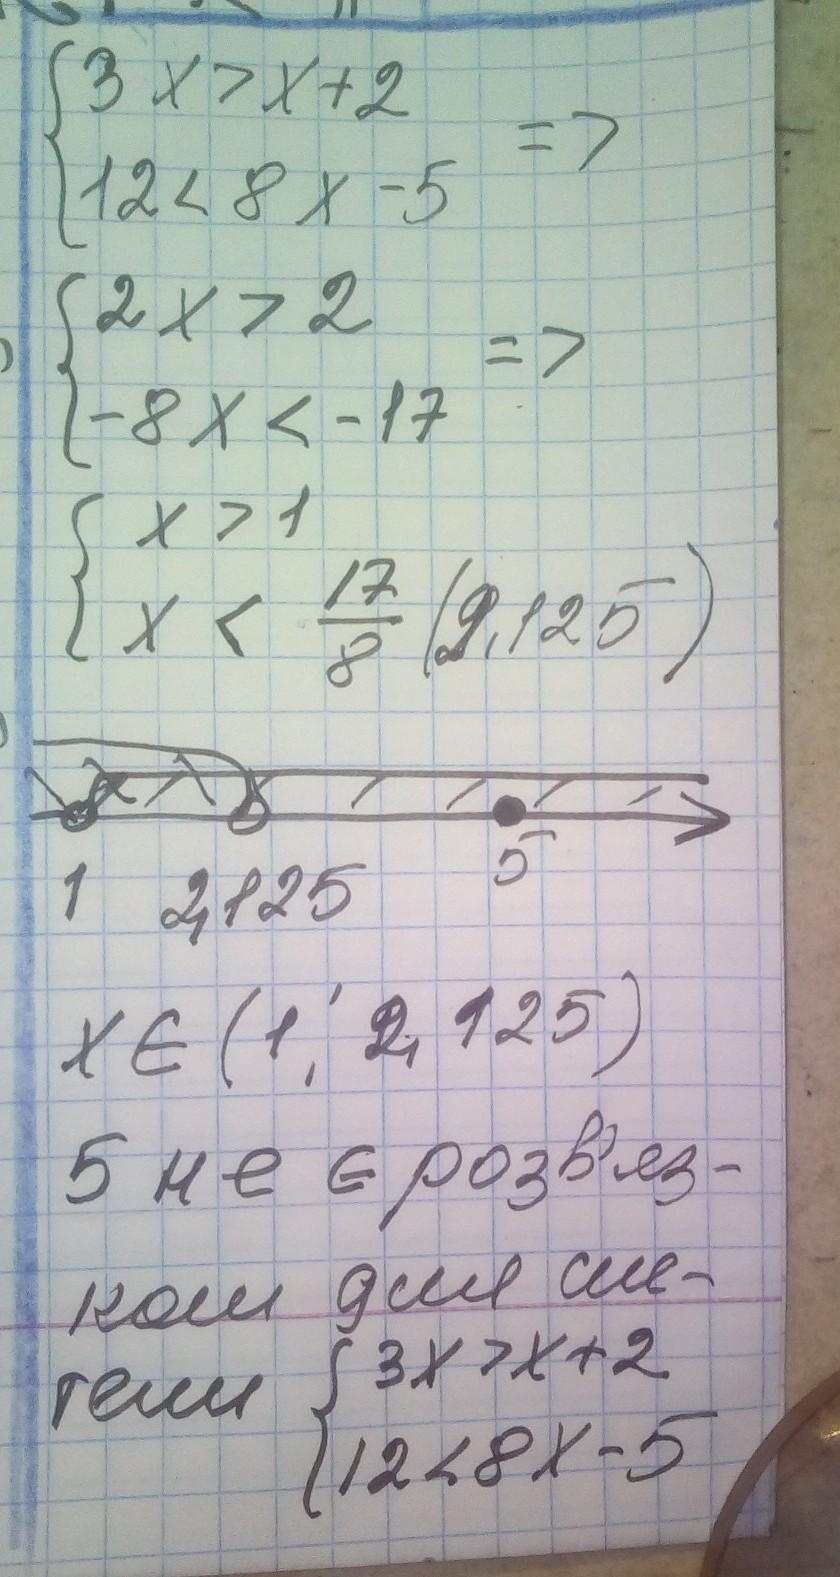 {3x>x+2
=>
{12<8x-5
{2x>2
=>
{-8x<-17
{x>1
{x<17/8(2,125)
1 2,125 5
x∈(1; 2,125)
5 не є розв'яз-
ком для сис-
теми {3x>x+2
{12<8x-5